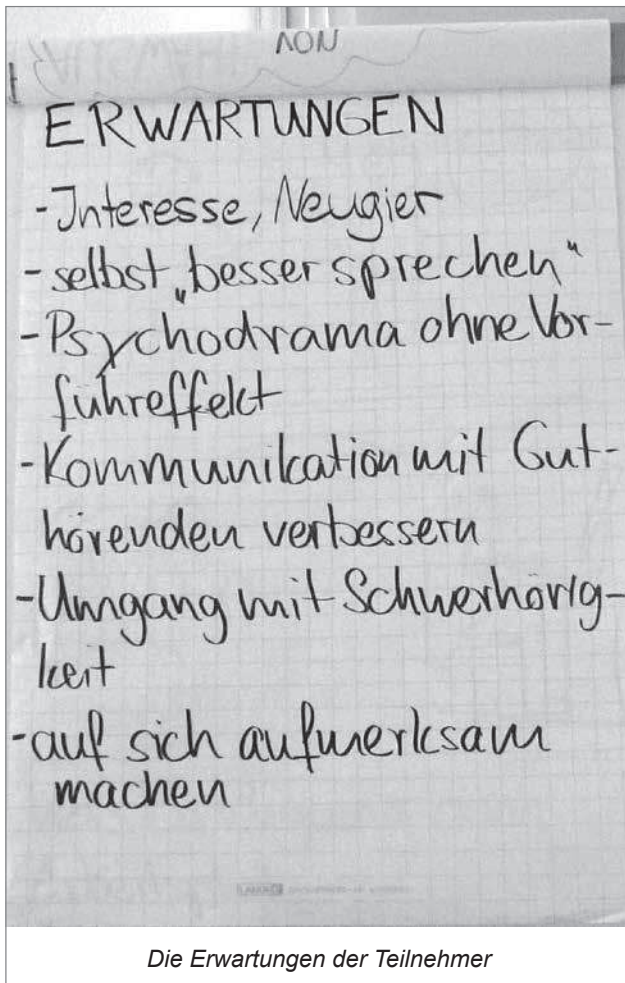 VON
ERWARTUNGEN
- Interesse, Neugier
- selbst „besser sprechen“
- Psychodrama ohne Vor-
führeffekt
- Kommunikation mit Gut-
hörenden verbessern
- Umgang mit Schwerhörig-
keit
- auf sich aufmerksam
machen
Die Erwartungen der Teilnehmer